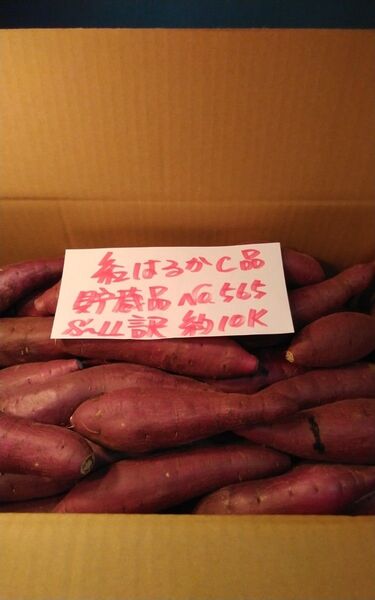 紅はるかC品
貯蔵品 No565
S〜LL訳 約10K